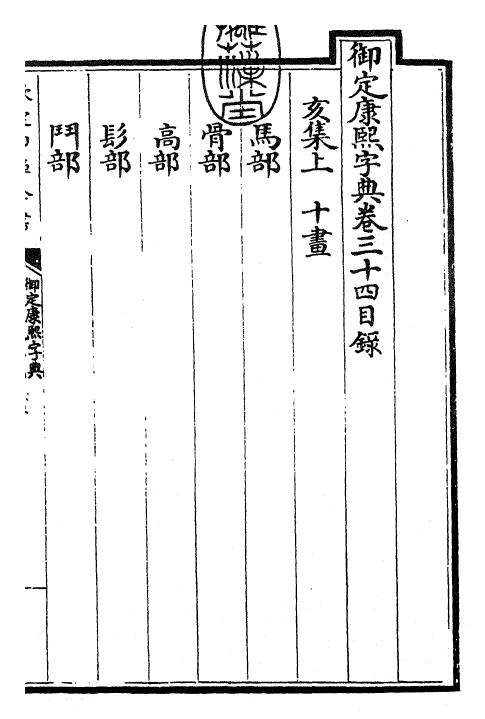 御定康熙字典卷三十四目錄
亥集上 十畫
馬部
骨部
高部
髟部
鬥部
御定康熙字典